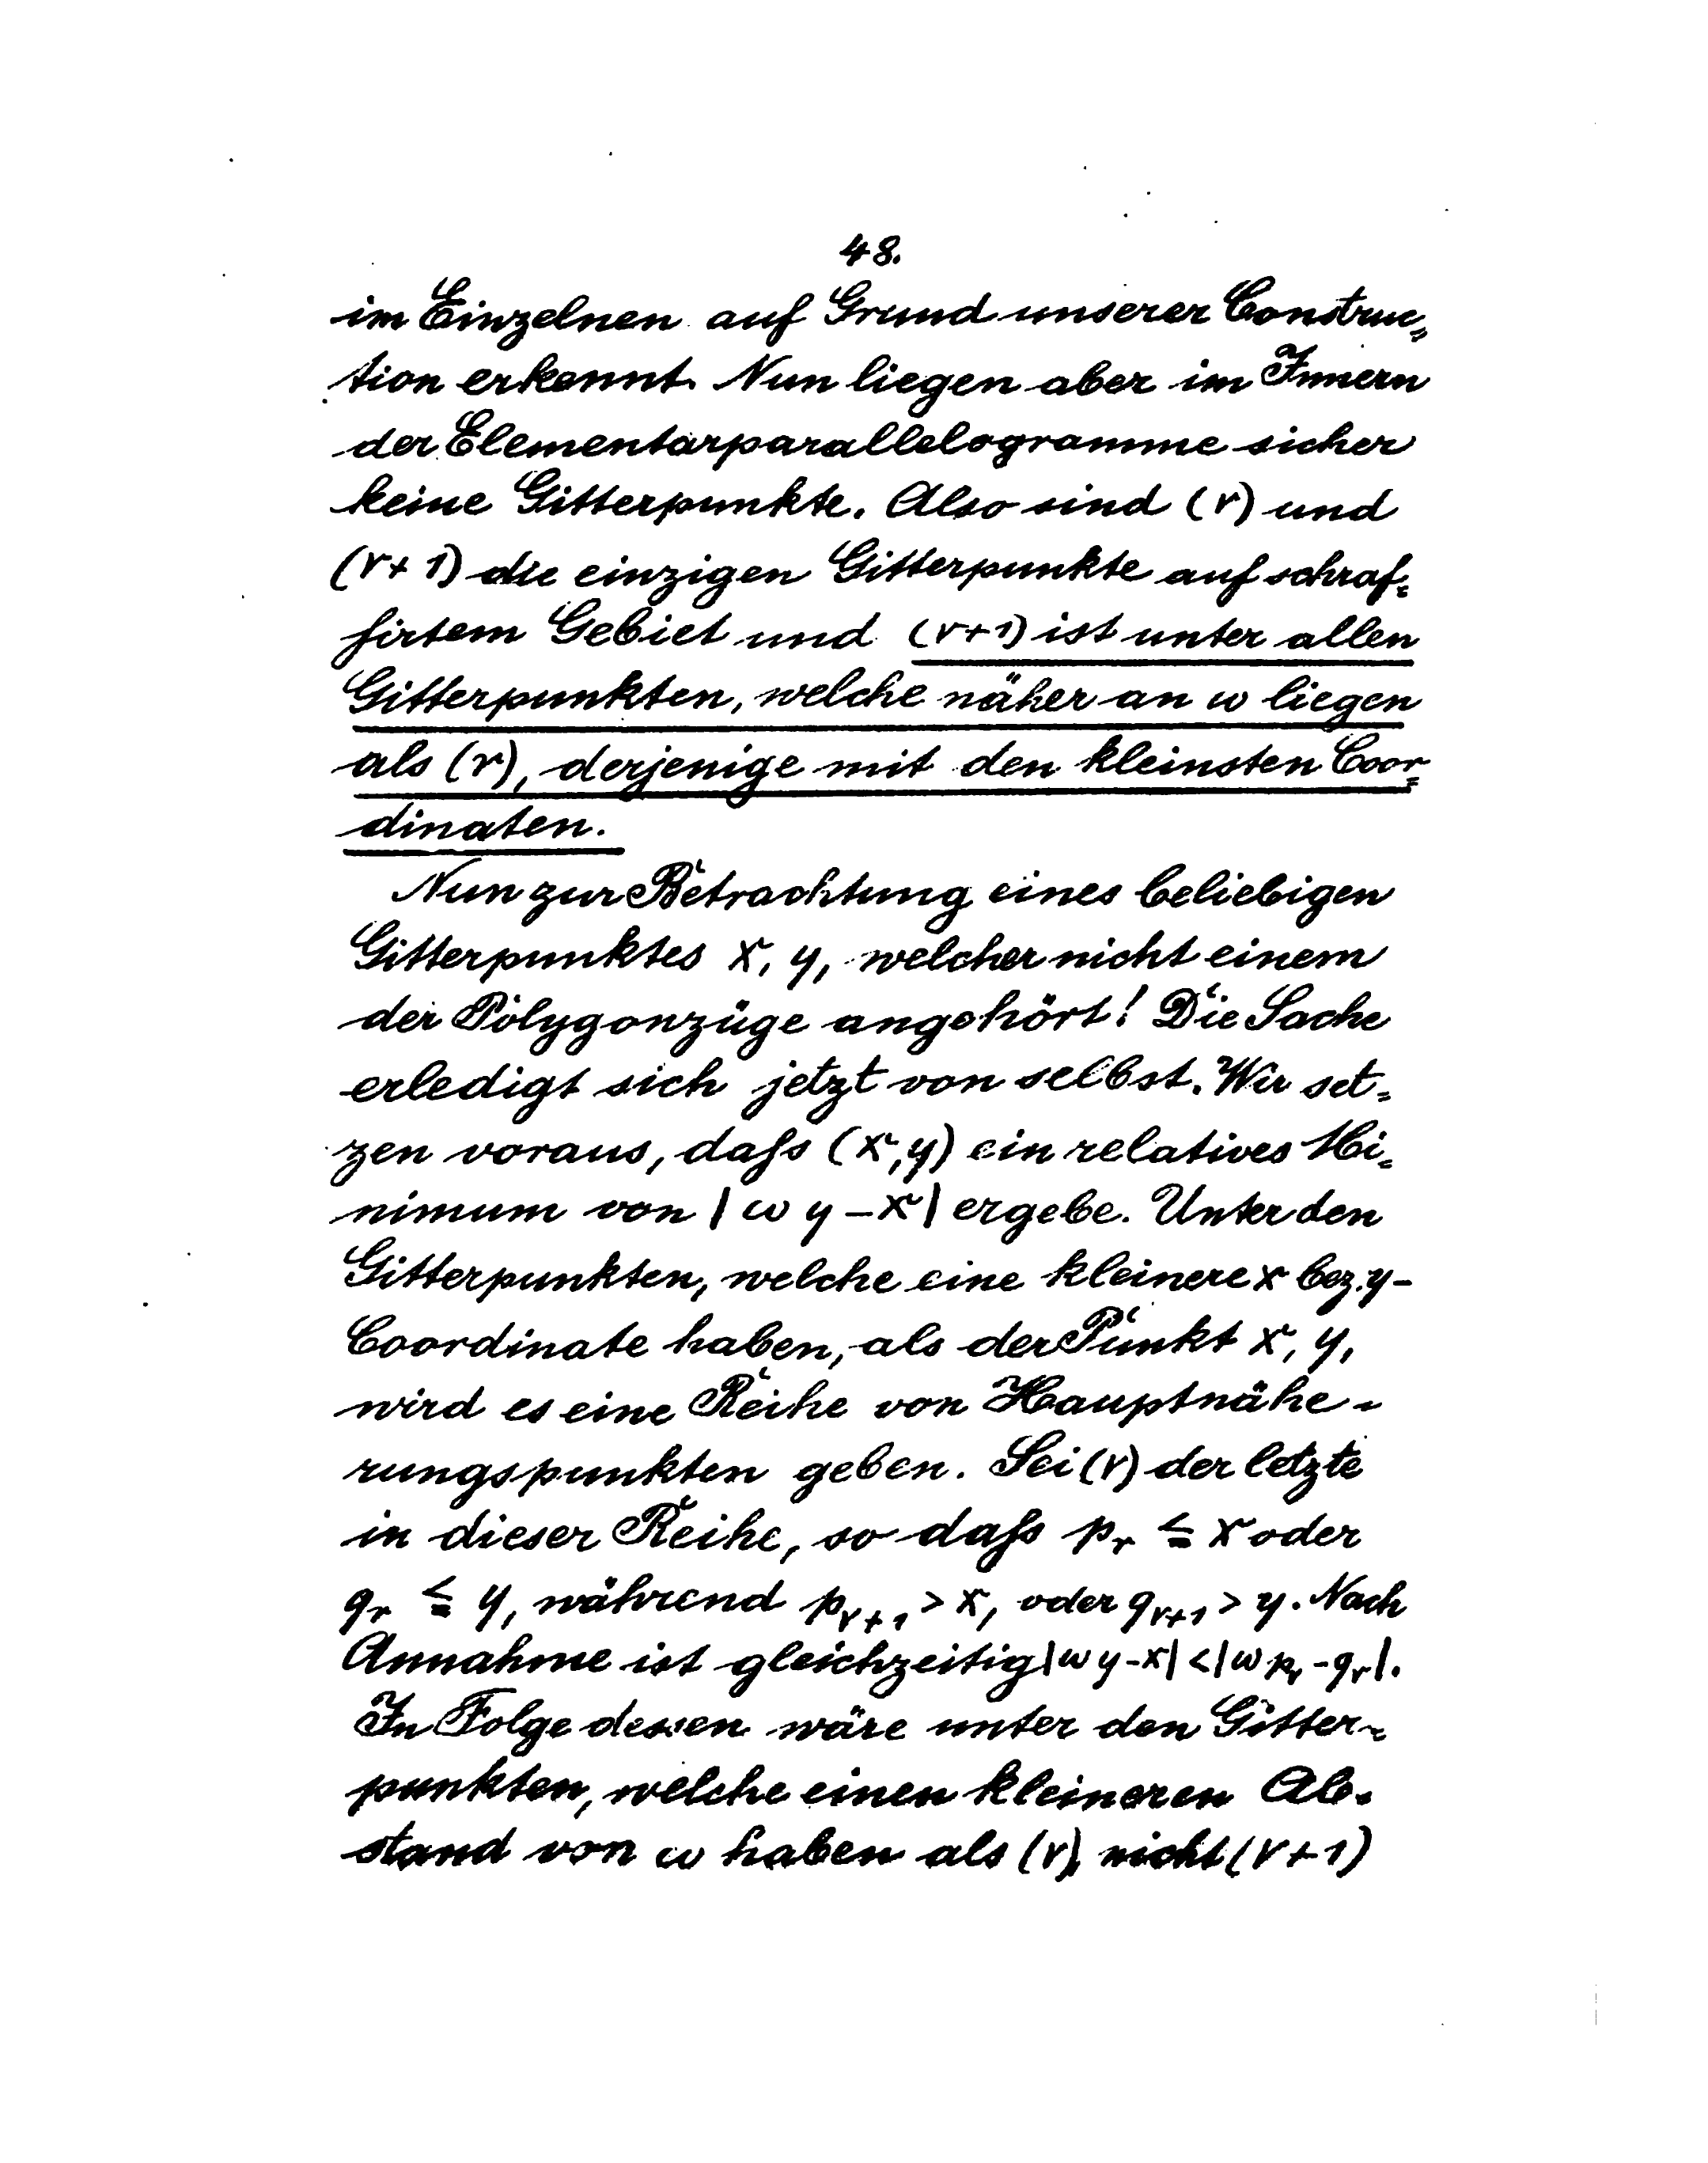 48.
im Einzelnen auf Grund unserer Construc=
tion erkennt. Nun liegen aber im Innern
der Elementarparallelogramme sicher
keine Gitterpunkte. Also sind (r) und
(r+1) die einzigen Gitterpunkte auf schraf=
firtem Gebiet und (r+1) ist unter allen
Gitterpunkten, welche näher an ω liegen
als (r), derjenige mit den kleinsten Coor=
dinaten.
Nun zur Betrachtung eines beliebigen
Gitterpunktes x, y, welcher nicht einem
der Polygonzüge angehört! Die Sache
erledigt sich jetzt von selbst. Wir set=
zen voraus, daſs (x,y) ein relatives Mi=
nimum von |ω y - x| ergebe. Unter den
Gitterpunkten, welche eine kleinere x bez. y-
Coordinate haben, als der Punkt x, y,
wird es eine Reihe von Hauptnähe-
rungspunkten geben. Sei (r) der letzte
in dieser Reihe, so daſs p_r ≦ x oder
q_r ≦ y, während p_{r+1} > x, oder q_{r+1} > y. Nach
Annahme ist gleichzeitig |ω y - x| < |ω p_r - q_r|.
In Folge dessen wäre unter den Gitter-
punkten, welche einen kleineren Ab-
stand von ω haben als (r), nicht (r+1)